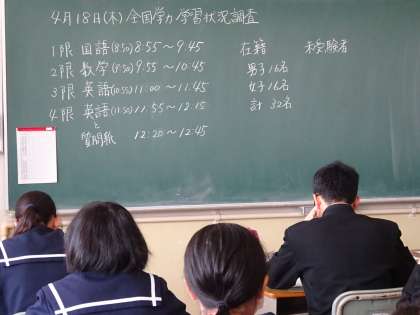 4月18日(木)全国学力学習状況調査
1限 国語(8:50) 8:55〜9:45
2限 数学(9:50) 9:55〜10:45
3限 英語(10:55) 11:00〜11:45
4限 英語(11:50) 11:55〜12:15
と
質問紙 12:20〜12:45
在籍 未受験者
男子16名
女子16名
計 32名